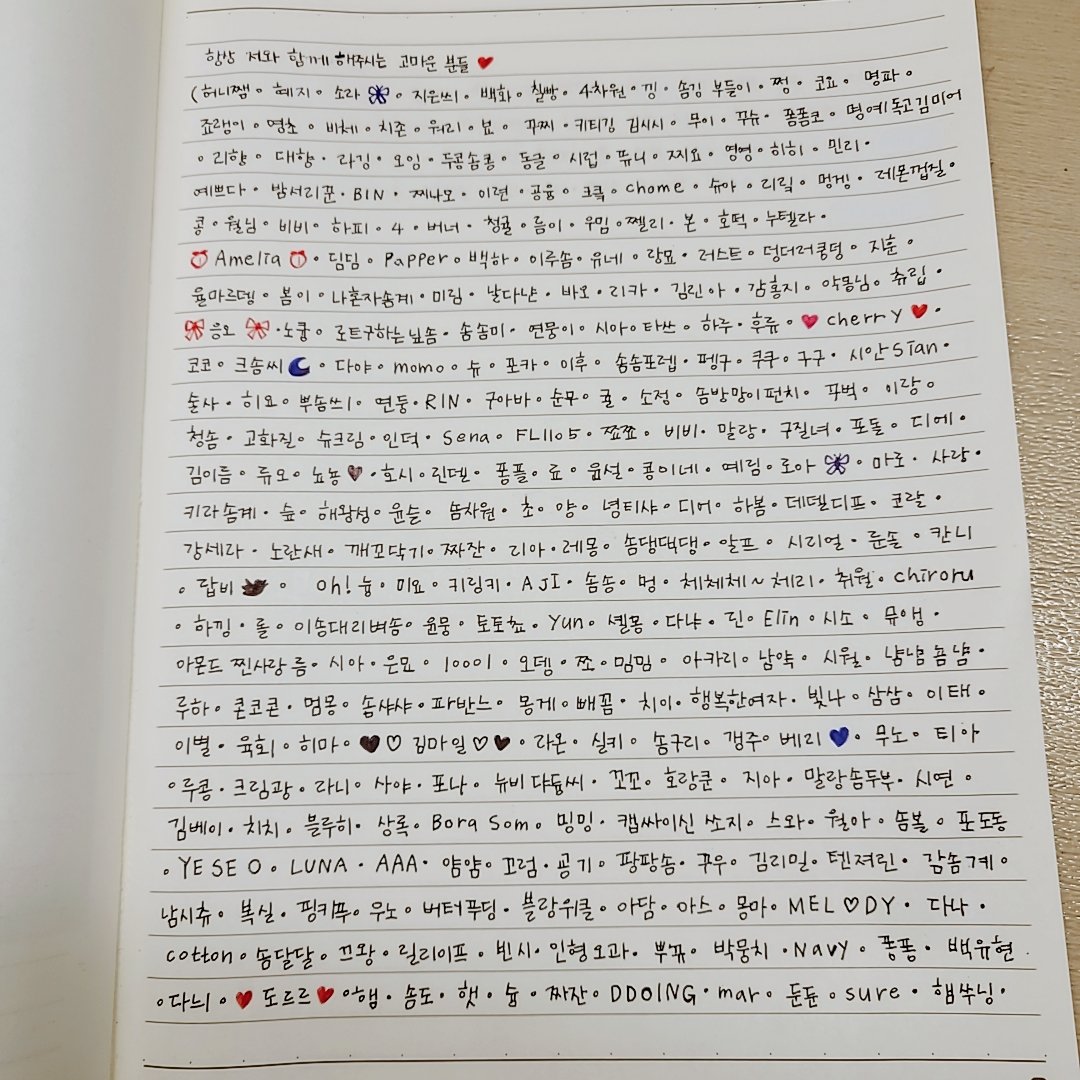 항상 저와 함께 해주시는 고마운 분들 ❤
(허니쨈 • 혜지 • 소라 • 지은쓰l • 백화 • 칠빵 • 4차원 • 낑 • 솜깅 부들이 • 쩡 • 코요 • 명파 •
죠랭이 • 영초 • 비체 • 치존 • 워리 • 뵤 • 뀨찌 • 키티깅 김시시 • 무이 • 꾸슈 • 퐁폼코 • 명예독고김미어
• 리향 • 대향 • 라깅 • 오잉 • 두콩솜콩 • 동글 • 시럽 • 퓨니 • 찌요 • 영영 • 히히 • 민리 •
예쁘다 • 밤서리꾼 • BIN • 찌나모 • 이련 • 공융 • 크큭 • chome • 슈아 • 리릭 • 멍게 • 레몬껍질 •
콩 • 월님 • 비비 • 하피 • 4 • 버너 • 청귤 • 름이 • 우밈 • 쩰리 • 본 • 호떡 • 누텔라 •
Amelia • 딤딤 • Papper • 백하 • 이루솜 • 유네 • 랑묘 • 러스트 • 덩더러쿵덩 • 지훈 •
율마르뎅 • 봄이 • 나혼자솜계 • 미림 • 날다냔 • 바오 • 리카 • 김린아 • 감홍지 • 악몽님 • 츄립
응오 • 노쿵 • 로트구하는닢솜 • 솜솜미 • 연뭉이 • 시아 • 타쓰 • 하주 • 후류 • ❤ cherry ❤ •
코코 • 크솜씨 • 다야 • momo • 슈 • 포카 • 이후 • 솜솜포렙 • 펭구 • 쿠쿠 • 구구 • 시안sian •
술사 • 히요 • 뿌솜쓰l • 연둥 • RIN • 구아바 • 순무 • 귤 • 소정 • 솜방망이펀치 • 뀨벅 • 이랑 •
청솜 • 고화질 • 슈크림 • 인덕 • Sena • FL1105 • 쬬쬬 • 비비 • 말랑 • 구질녀 • 포돌 • 디에 •
김이름 • 듀오 • 뇨뇽 ♥ • 호시 • 린델 • 퐁플 • 료 • 윤설 • 콩이네 • 예림 • 로아 • 마로 • 사랑 •
키라솜계 • 숲 • 해왕성 • 윤슬 • 솜차원 • 초 • 양 • 녕티샤 • 디어 • 하봄 • 데델디프 • 코랄 •
강세라 • 노란새 • 깨꼬닥기 • 짜잔 • 리아 • 레몽 • 솜댕댁댕 • 알프 • 시리얼 • 룬솔 • 칸니
• 탑비 • Oh! 슝 • 미요 • 키링키 • AJI • 솜송 • 멍 • 체체체~체리 • 취월 • chiroru
• 하낑 • 롤 • 이송대리벼송 • 윤뭉 • 토토쵸 • Yun • 셸몽 • 다냐 • 린 • Elin • 시소 • 뮤앰 •
아몬드 찐사랑 름 • 시아 • 은묘 • 1001 • 오뎅 • 쪼 • 밈밈 • 아카리 • 남약 • 시월 • 냠냠솜냠 •
루하 • 콘코콘 • 멈몽 • 솜샤샤 • 파반느 • 몽게 • 빼꼼 • 치이 • 행복한여자 • 빛나 • 삼삼 • 이태 •
이별 • 육회 • 히마 • ♥♡ 김마일 ♡♥ • 라온 • 실키 • 솜구리 • 갱주 • 베리 💙 • 무노 • 티아
• 루콩 • 크림광 • 라니 • 사야 • 포나 • 뉴비 댜듑씨 • 꼬꼬 • 호랑쿤 • 지아 • 말랑솜두부 • 시연 •
김베이 • 치치 • 블루히 • 상록 • Bora Som • 밍밍 • 캡싸이신 쏘지 • 스와 • 월아 • 솜볼 • 포도동
• YESEO • LUNA • AAA • 얌얌 • 꼬럼 • 공기 • 팡팡솜 • 꾸우 • 김리밀 • 텐져린 • 감솜계 •
남시츄 • 복실 • 핑키푸 • 우노 • 버터푸딩 • 블랑위클 • 아담 • 아스 • 몽마 • MEL♡DY • 다나 •
cotton • 솜달달 • 끄왕 • 릴리이프 • 빈시 • 인형오과 • 뿌뀨 • 박뭉치 • Navy • 퐁퐁 • 백유현 •
• 다늬 • ❤ 도르르 ❤ • 햄 • 솜도 • 햇 • 숨 • 짜잔 • DDOING • mar • 둔듄 • sure • 햅쑤닝 •